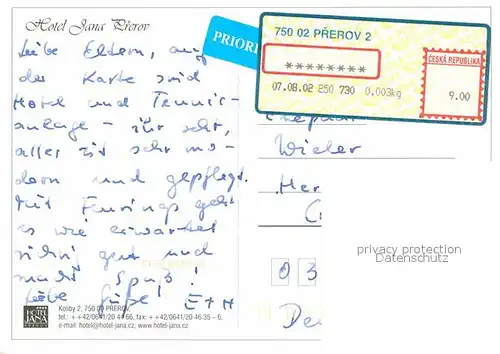 Hotel Jana Přerov
Liebe Eltern, auf
der Karte sind
Hotel und Tennis-
anlage – Ihr seht,
alles ist sehr mo-
dern und gepflegt.
Mit geht
es wie erwartet
richtig gut und
macht Spaß!
Liebe Grüße! E+H
HOTEL
JANA
PŘEROV
Koliby 2, 750 02 PŘEROV,
tel.: ++42/0641/20 44 66, fax: ++42/0641/20 46 35 – 6.
e-mail: hotel@hotel-jana.cz, www.hotel-jana.cz.
PRIORI
750 02 PŘEROV 2
********
07.08.02 250 730 0.003kg
ČESKÁ REPUBLIKA
9.00
Ehepaar
Wieler
Her
C
privacy protection
Datenschutz
0 3
De